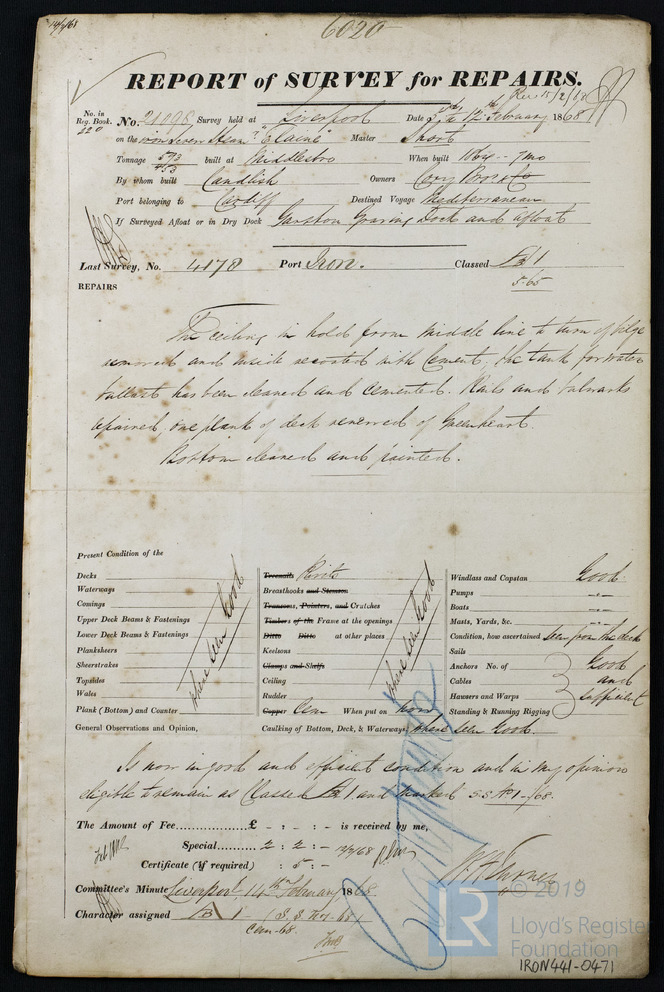 14/2/68
6020
REPORT of SURVEY for REPAIRS.
Rec 15/2/68
No. in Reg. Book. 220 No. 21098 Survey held at Liverpool Date 5th & 12th February 1868
on the iron screw Steam "Elaine" Master Short
Tonnage 593 453 built at Middlesbro When built 1864 - 7mo
By whom built Candlish Owners Cory Bros & Co
Port belonging to Cardiff Destined Voyage Mediterranean
If Surveyed Afloat or in Dry Dock Garston Graving Dock and afloat
Last Survey, No. 4178 Port Iron. Classed B 1
5-65
REPAIRS
The Ceiling in hold from middle line to turn of bilge
removed and inside recoated with Cement, the tank for water
ballast has been cleaned and cemented. Rails and bulwarks
repaired, one plank of deck renewed of Greenheart.
Bottom cleaned and painted.
Present Condition of the
Decks
Waterways
Comings
Upper Deck Beams & Fastenings
Lower Deck Beams & Fastenings
Planksheers
Sheerstrakes
Topsides
Wales
Plank (Bottom) and Counter
where seen Good
General Observations and Opinion,
Treenails Rivets
Breasthooks and Stemson
Transoms, Pointers, and Crutches
Timbers of the Frame at the openings
Ditto Ditto at other places
Keelsons
Clamps and Shelfs
Ceiling
Rudder
where seen Good
Copper Cem When put on now
Caulking of Bottom, Deck, & Waterways, where seen Good.
Windlass and Capstan Good
Pumps -"-
Boats -"-
Masts, Yards, &c. -"-
Condition, how ascertained Seen from the deck
Sails
Anchors No. of Good
Cables and
Hawsers and Warps Sufficient
Standing & Running Rigging
Is now in good and efficient condition and in my opinion
eligible to remain as Classed B 1 and marked S.S. No 1-/68.
The Amount of Fee £ - : - : - is received by me,
Special 2 : 2 : -
Certificate (if required) : 5 : -
Committee's Minute Liverpool, 14th February 1868
Character assigned B 1 - (S.S. No 1-68)
Cem-68.
© 2019
LR Lloyd's Register Foundation
IRON441-0471